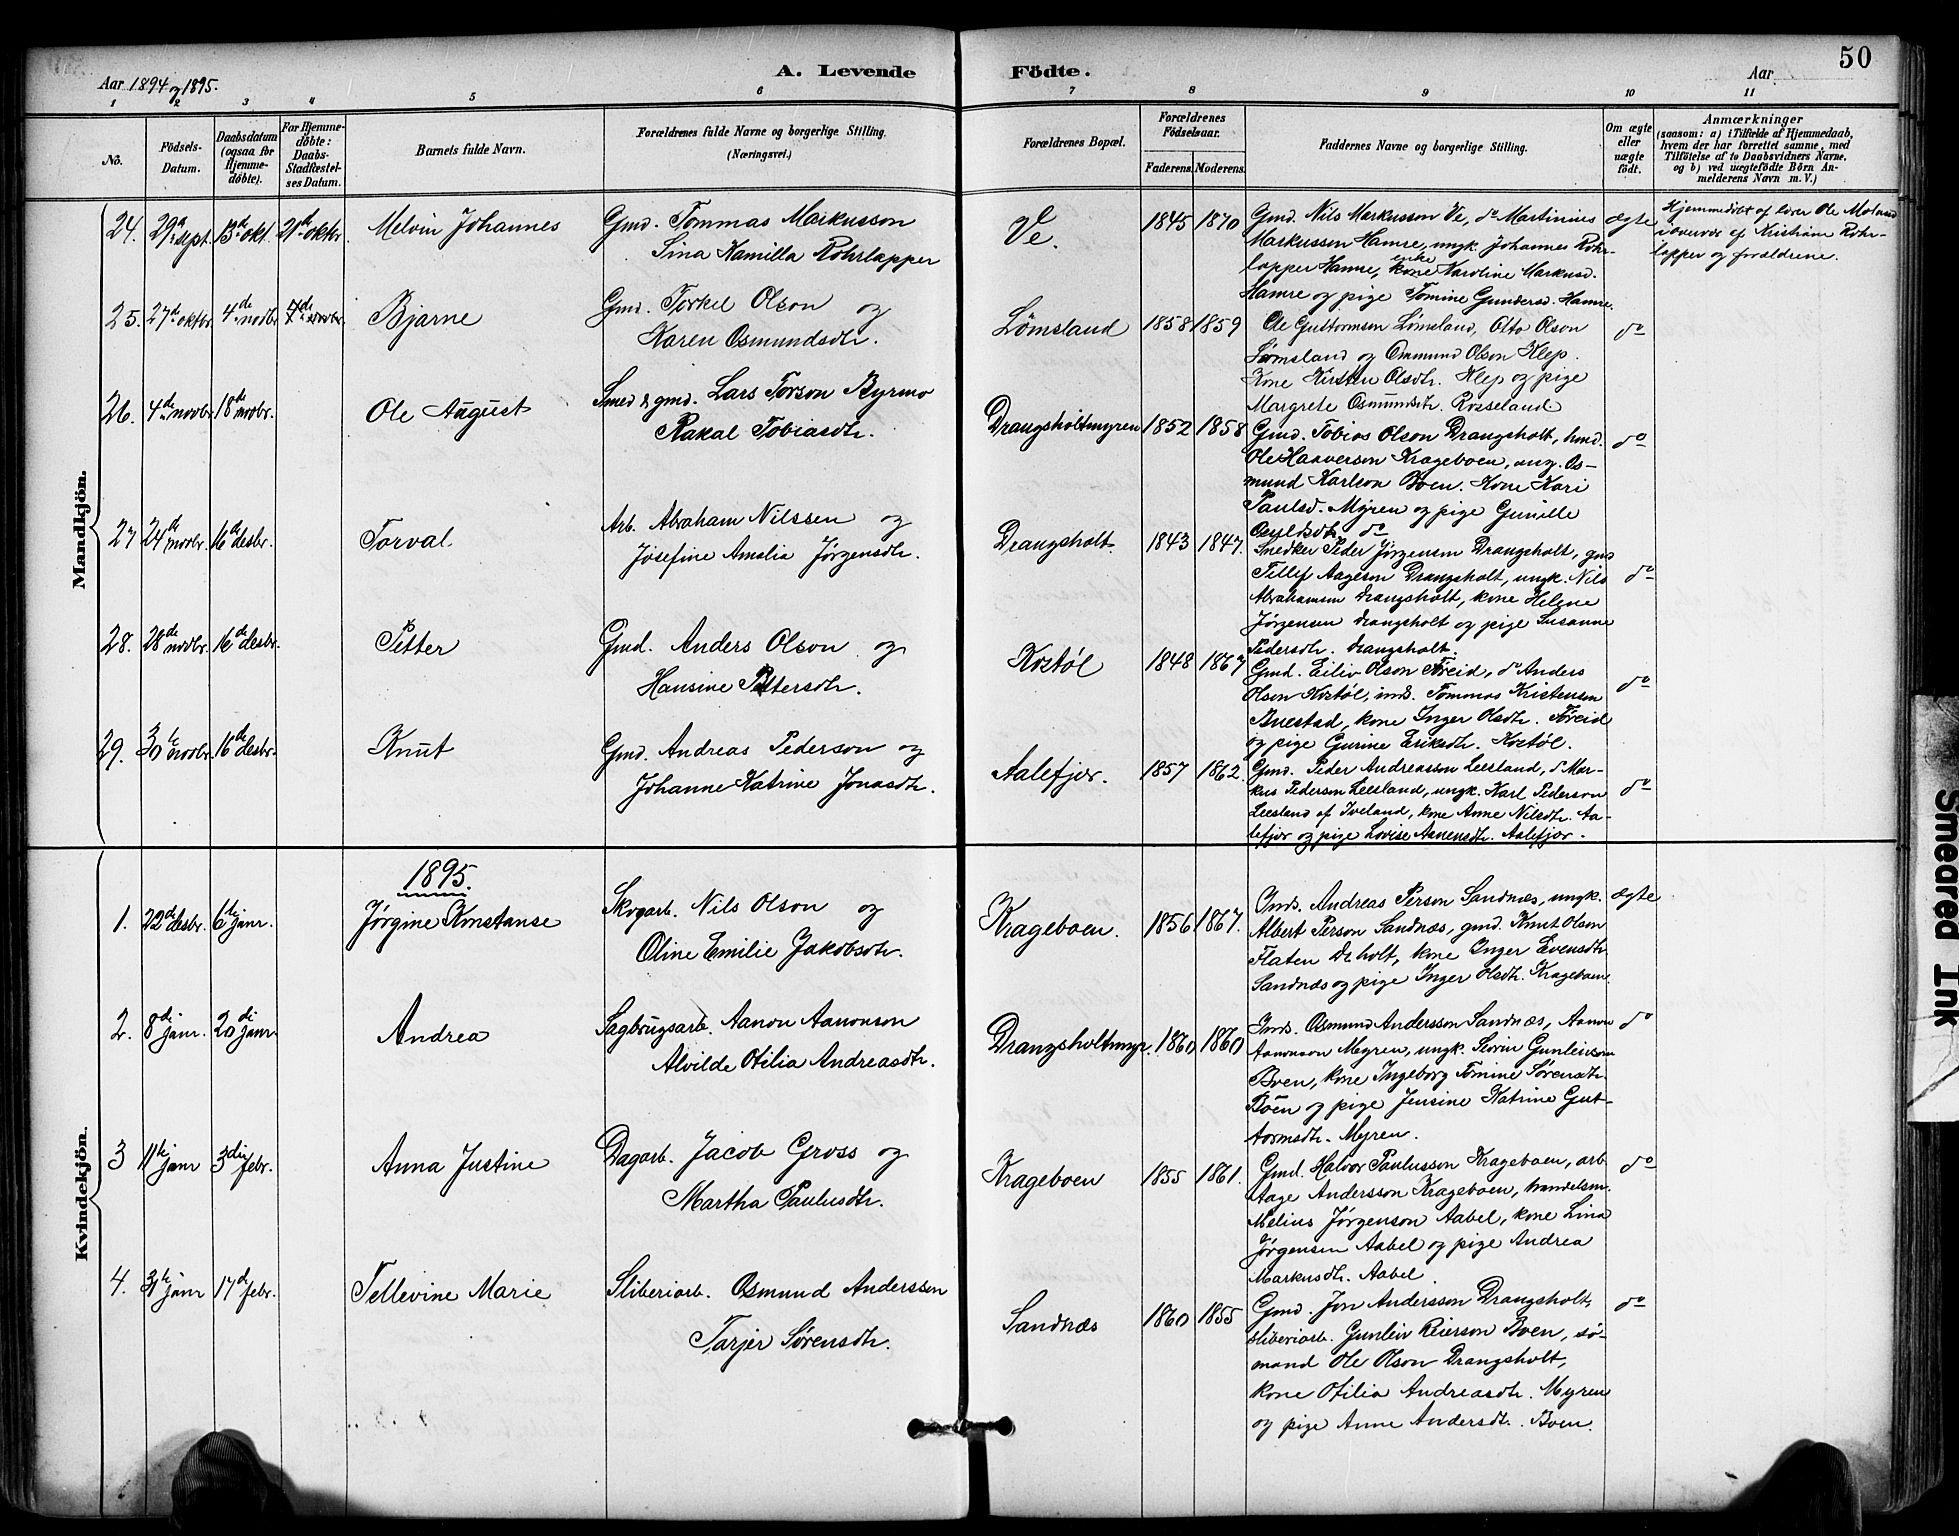 50
Aar 1894 og 1895.
A. Levende Födte.
Aar
1 2 3 4 5 6 7 8 9 10 11
No.
Födsels-Datum.
Daabsdatum (ogsaa for Hjemme-döbte).
For Hjemme-döbte: Daabs-Stadfæstel-ses Datum.
Barnets fulde Navn.
Forældrenes fulde Navne og borgerlige Stilling.
(Næringsvei.)
Forældrenes Bopæl.
Forældrenes Födselsaar.
Faderens. Moderens.
Faddernes Navne og borgerlige Stilling.
Om ægte eller uægte födt.
Anmærkninger
(saasom: a) i Tilfælde af Hjemmedaab,
hvem der har forrettet samme, med
Tilföielse af to Daabsvidners Navne,
og b) ved uægtefödte Börn An-
melderens Navn m. V.)
Mandkjön.
24. 29de sept. 13de okt. 21de oktbr Melvin Johannes
Gmd. Tommas Markusson
Sina Kamilla Rohrlapper
Ve. 1845 1870
Gmd. Nils Markusson Ve, do Martinius
Markussen Hamre, ungk. Johannes Rohr-
lapper Hamre, enke kone Karoline Markusd.
Hamre og pige Tomine Gundersd. Hamre.
ægte
Hjemmedöbt af lærer Ole
i overvær af Kristiane Rohr-
lapper og forældrene.
25. 27de oktbr. 4de novbr. 7de novbr. Bjarne
Gmd. Torkel Olson og
Karen Osmundsdtr.
Lømsland 1858 1859
Ole Guttormsen Lømsland, Otto Olson
Lømsland og Ommund Olson Klep.
Kone Kirsten Olsdtr. Klep og pige
Margrete Osmundsdtr. Rosseland.
do
26. 4de novbr. 18de novbr. Ole August
Smed & gmd. Lars Torson Byrmo
Rakal Tobiasdtr.
Drangsholtmyren 1852 1858
Gmd. Tobias Olson Drangsholt, hmd.
Ole Haaverson Krageboen, ung. Os-
mund Karlson Boen. Kone Kari
Paulsd. Myren og pige Gunille
Osuldsdtr. do
do
27 24de novbr. 16de desbr. Torval
Arb. Abraham Nilssen og
Josefine Amalie Jörgensdtr.
Drangsholt 1843 1847.
Snedker Peder Jörgensen Drangsholt, gmd
Tellef Aageson Drangsholt, ungk. Nils
Abrahamsen Drangsholt, kone Helene
Jørgensen Drangsholt og pige Susanne
Pedersdtr. Drangsholt.
do
28. 28de novbr. 16de desbr. Petter
Gmd. Anders Olson og
Hansine Pettersdtr.
Kostøl 1848 1867
Gmd. Eiliv Olson Føreid, do Anders
Olson Kostøl, inds. Tommas Kristensen
Buestad, kone Inger Olsdtr. Føreid
og pige Gurine Eriksdtr. Kostøl.
do
29. 30te novbr. 16de desbr. Knut
Gmd. Andreas Pederson og
Johanne Katrine Jonasdtr.
Aalefjær. 1857 1862.
Gmd. Peder Andreasson Leesland, do Mar-
kus Pederson Leesland, ungk. Karl Pederson
Leesland af Iveland, kone Anne Nilsdtr. Aa-
lefjær og pige Lovise Aanensdtr. Aalefjær.
do
Kvindekjön.
1895.
1. 22de desbr. 6te janr. Jørgine Konstanse
Skogarb. Nils Olson og
Oline Emilie Jakobsdtr.
Krageboen. 1856 1867.
Inds. Andreas Person Sandnæs, ungk.
Albert Person Sandnæs, gmd. Knut Olson
Flaten Deholt, kone Inger Evensdtr.
Sandnæs og pige Inger Olsdtr. Krageboen
ægte
2. 8di janr. 20di janr. Andrea
Sagbrugsarb. Aanon Aanonson
Alvilde Otilia Andreasdtr.
Drangsholtmyr. 1860 1860
Inds. Osmund Andersson Sandnæs, Aanon
Aanonson Myren, ungk. Severin Gunleivson
Boen, kone Ingeborg Tomine Sørensdtr.
Boen og pige Jensine Katrine Gut-
tormsdtr. Myren.
do
3 11te janr 3die febr. Anna Justine
Dagarb. Jacob Gross og
Martha Paulusdtr.
Krageboen 1855 1861.
Gmd. Halvor Paulusson Krageboen, arb
Aage Andersson Krageboen, handelsm.
Melius Jörgenson Aabel, kone Lina
Jørgensen Aabel og pige Andrea
Markusdtr. Aabel.
do
4. 31te janr 17de febr. Tellevine Marie
Sliberiarb. Osmund Anderssen
Tarjer Sørensdtr.
Sandnæs 1860 1855
Gmd. Jon Andersson Drangsholt,
sliberiarb. Gunleiv Reierson Boen, sö-
mand Ole Olson Drangsholt,
kone Otilia Andreasdtr. Myren
og pige Anne Andersdt. Boen.
do
Smeared Ink